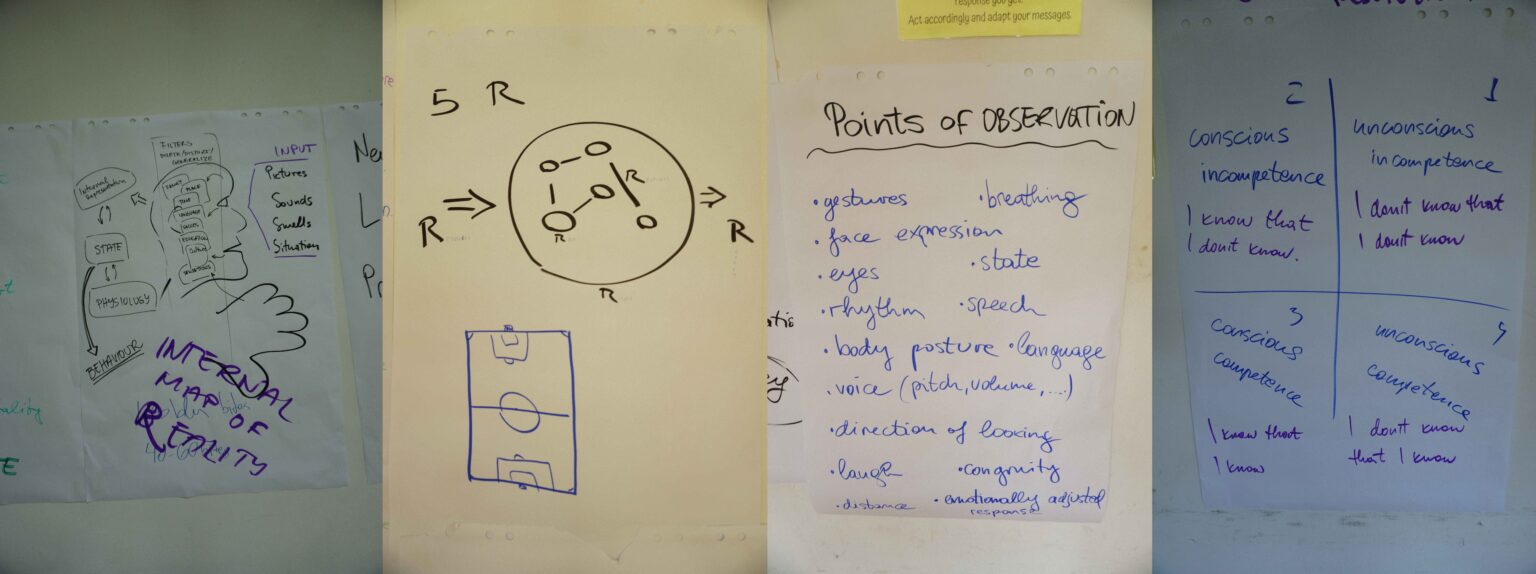 INPUT
Pictures
Sounds
Smells
Situation
FILTERS
GENERALIZE
Internal
Representation
STATE
PHYSIOLOGY
BEHAVIOUR
LANGUAGE
INTERNAL
MAP OF
REALITY
5 R
R
R
R
R
R
response you get.
Act accordingly and adapt your messages.
Points of OBSERVATION
• gestures
• breathing
• face expression
• eyes
• state
• rhythm
• speech
• body posture
• language
• voice (pitch, volume, ...)
• direction of looking
• laugh
• congruity
• distance
• emotionally adjusted
response
2
conscious
incompetence
I know that
I don't know.
1
unconscious
incompetence
I don't know that
I don't know
3
conscious
competence
I know that
I know
unconscious
competence
I don't know
that I know